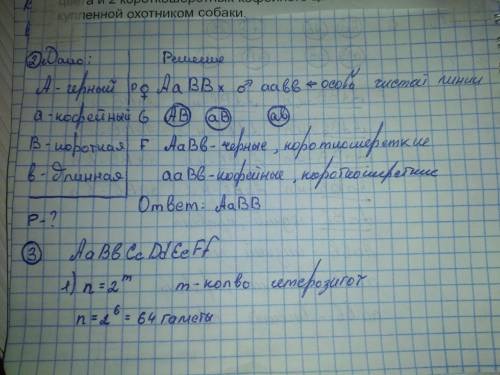 цвета и 2 короткошерстных кофейного ц
купленной охотником собаки.
② Дано: Решение
А - черный P ♀ АаВВ х ♂ аавв ← особь чистой линии
а - кофейный G АВ аВ ав
В - короткая F АаВв - черные, короткошерсткие
в - длинная ааВв - кофейные, короткошерсткие
P - ? Ответ: АаВВ
③ АаВвСсDdЕеFf
1) n = 2^m m - колво гетерозигот
n = 2^6 = 64 гаметы